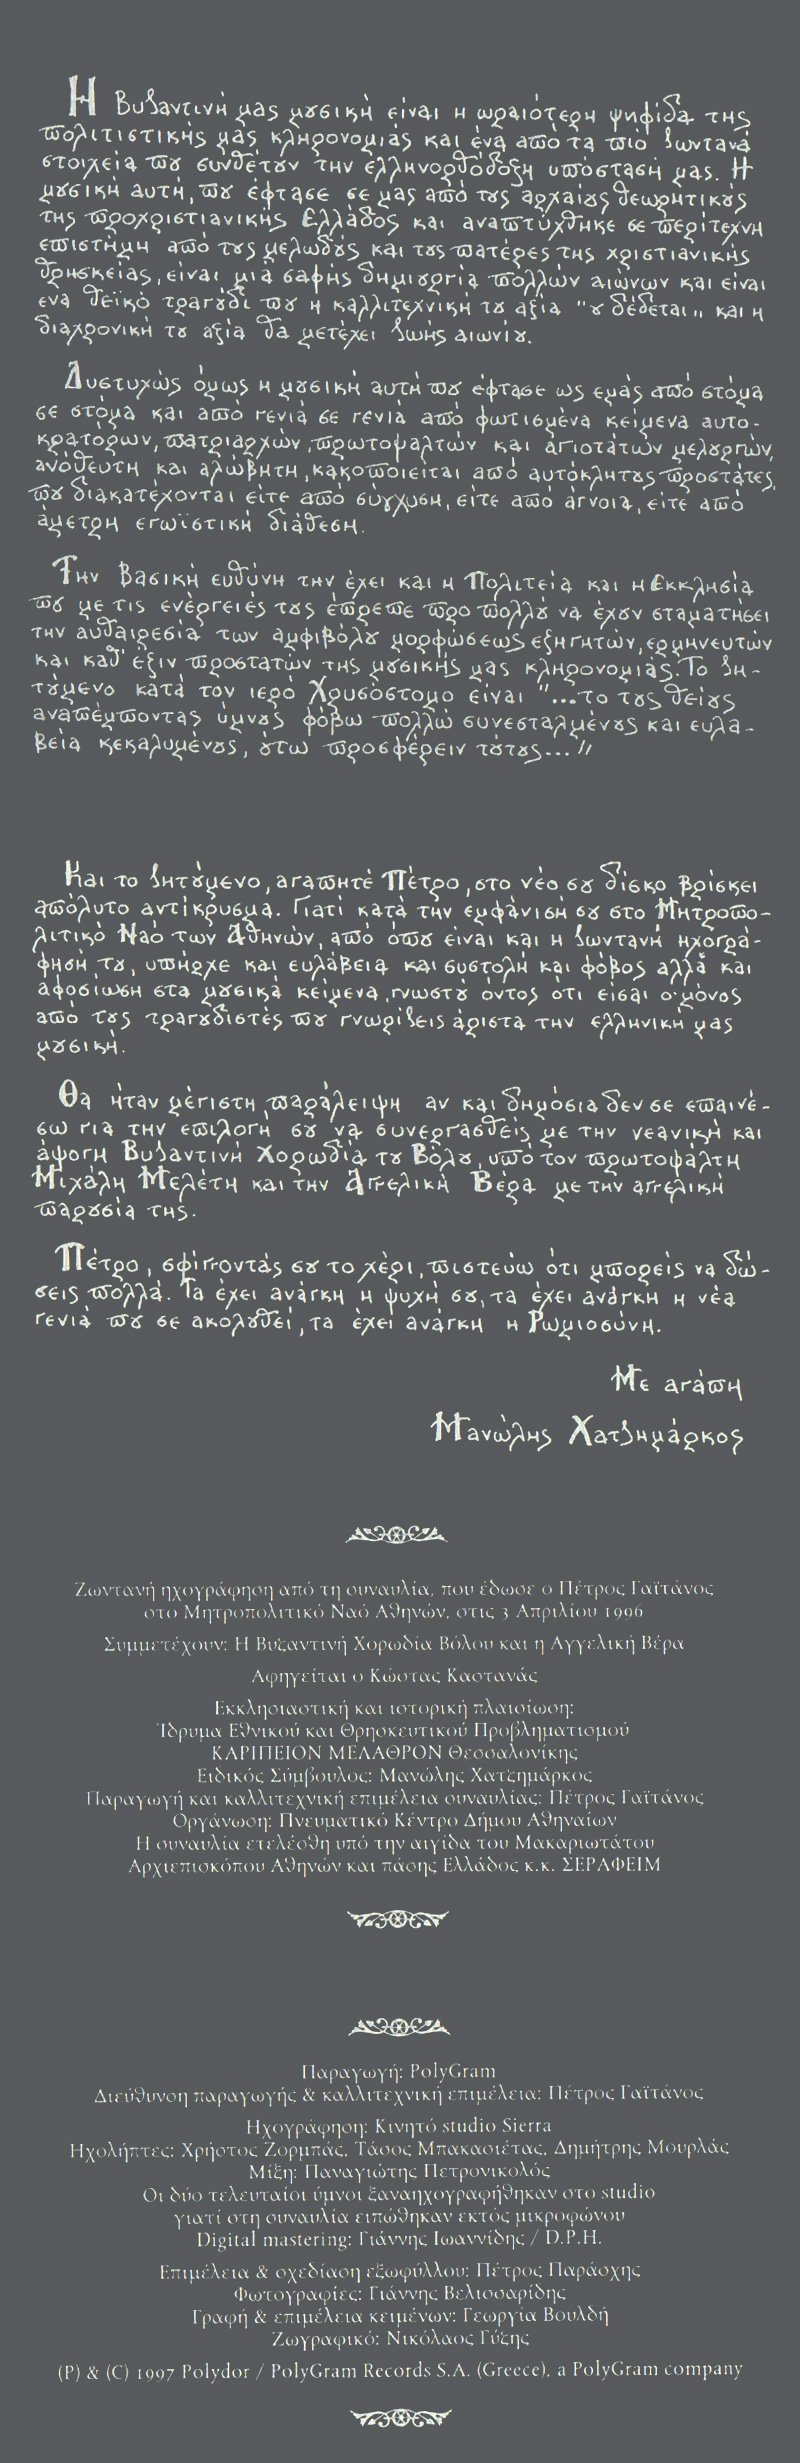 Η Βυζαντινή μας μουσική είναι η ωραιότερη ψηφίδα της
πολιτιστικής μας κληρονομιάς και ένα από τα πιό ζωντανά
στοιχεία που συνθέτουν την ελληνορθόδοξη υπόστασή μας. Η
μουσική αυτή, που έφτασε σε μας από τους αρχαίους θεωρητικούς
της προχριστιανικής Ελλάδος και αναπτύχθηκε σε περίτεχνη
επιστήμη από τους μελωδούς και τους πατέρες της χριστιανικής
θρησκείας, είναι μιά σαφής δημιουργία πολλών αιώνων και είναι
ένα θεϊκό τραγούδι που η καλλιτεχνική του αξία "ου δέδεται" και η
διαχρονική του αξία θα μετέχει ζωής αιωνίου.
Δυστυχώς όμως η μουσική αυτή που έφτασε ως εμάς από στόμα
σε στόμα και από γενιά σε γενιά από φωτισμένα κείμενα αυτο-
κρατόρων, πατριαρχών, πρωτοψαλτών και αγιοτάτων μελουργών,
ανόθευτη και αλώβητη, κακοποιείται από αυτόκλητους προστάτες,
που διακατέχονται είτε από σύγχυση, είτε από άγνοια, είτε από
άμετρη εγωϊστική διάθεση.
Την βασική ευθύνη την έχει και η Πολιτεία και η Εκκλησία
που με τις ενέργειές τους έπρεπε προ πολλού να έχουν σταματήσει
την αυθαιρεσία των αμφιβόλου μορφώσεως εξηγητών, ερμηνευτών
και καθ' έξιν προστατών της μουσικής μας κληρονομιάς. Το ζη-
τούμενο κατά τον ιερό Χρυσόστομο είναι "...το τους θείους
αναπέμποντας ύμνους φόβω πολλώ συνεσταλμένους και ευλα-
βεία κεκαλυμένους, ούτω προσφέρειν τούτους..."
Και το ζητούμενο, αγαπητέ Πέτρο, στο νέο σου δίσκο βρίσκει
απόλυτο αντίκρυσμα. Γιατί κατά την εμφάνισή σου στο Μητροπο-
λιτικό Ναό των Αθηνών, από όπου είναι και η ζωντανή ηχογρά-
φησή του, υπήρχε και ευλάβεια και συστολή και φόβος αλλά και
αφοσίωση στα μουσικά κείμενα, γνωστού όντος ότι είσαι ο μόνος
από τους τραγουδιστές που γνωρίζεις άριστα την ελληνική μας
μουσική.
Θα ήταν μέγιστη παράλειψη αν και δημόσια δεν σε επαινέ-
σω για την επιλογή σου να συνεργασθείς με την νεανική και
άψογη Βυζαντινή Χορωδία του Βόλου, υπό τον πρωτοψάλτη
Μιχάλη Μελέτη και την Αγγελική Βέρα με την αγγελική
παρουσία της.
Πέτρο, σφίγγοντάς σου το χέρι, πιστεύω ότι μπορείς να δώ-
σεις πολλά. Τα έχει ανάγκη η ψυχή σου, τα έχει ανάγκη η νέα
γενιά που σε ακολουθεί, τα έχει ανάγκη η Ρωμιοσύνη.
Με αγάπη
Μανώλης Χατζημάρκος
Ζωντανή ηχογράφηση από τη συναυλία, που έδωσε ο Πέτρος Γαϊτάνος
στο Μητροπολιτικό Ναό Αθηνών, στις 3 Απριλίου 1996
Συμμετέχουν: Η Βυζαντινή Χορωδία Βόλου και η Αγγελική Βέρα
Αφηγείται ο Κώστας Καστανάς
Εκκλησιαστική και ιστορική πλαισίωση:
Ίδρυμα Εθνικού και Θρησκευτικού Προβληματισμού
ΚΑΡΙΠΕΙΟΝ ΜΕΛΑΘΡΟΝ Θεσσαλονίκης
Ειδικός Σύμβουλος: Μανώλης Χατζημάρκος
Παραγωγή και καλλιτεχνική επιμέλεια συναυλίας: Πέτρος Γαϊτάνος
Οργάνωση: Πνευματικό Κέντρο Δήμου Αθηναίων
Η συναυλία ετελέσθη υπό την αιγίδα του Μακαριωτάτου
Αρχιεπισκόπου Αθηνών και πάσης Ελλάδος κ.κ. ΣΕΡΑΦΕΙΜ
Παραγωγή: PolyGram
Διεύθυνση παραγωγής & καλλιτεχνική επιμέλεια: Πέτρος Γαϊτάνος
Ηχογράφηση: Κινητό studio Sierra
Ηχολήπτες: Χρήστος Ζορμπάς, Τάσος Μπακασιέτας, Δημήτρης Μουρλάς
Μίξη: Παναγιώτης Πετρονικολός
Οι δύο τελευταίοι ύμνοι ξαναηχογραφήθηκαν στο studio
γιατί στη συναυλία ειπώθηκαν εκτός μικροφώνου
Digital mastering: Γιάννης Ιωαννίδης / D.P.H.
Επιμέλεια & σχεδίαση εξωφύλλου: Πέτρος Παράσχης
Φωτογραφίες: Γιάννης Βελισσαρίδης
Γραφή & επιμέλεια κειμένων: Γεωργία Βουλδή
Ζωγραφικό: Νικόλαος Γύζης
(P) & (C) 1997 Polydor / PolyGram Records S.A. (Greece), a PolyGram company